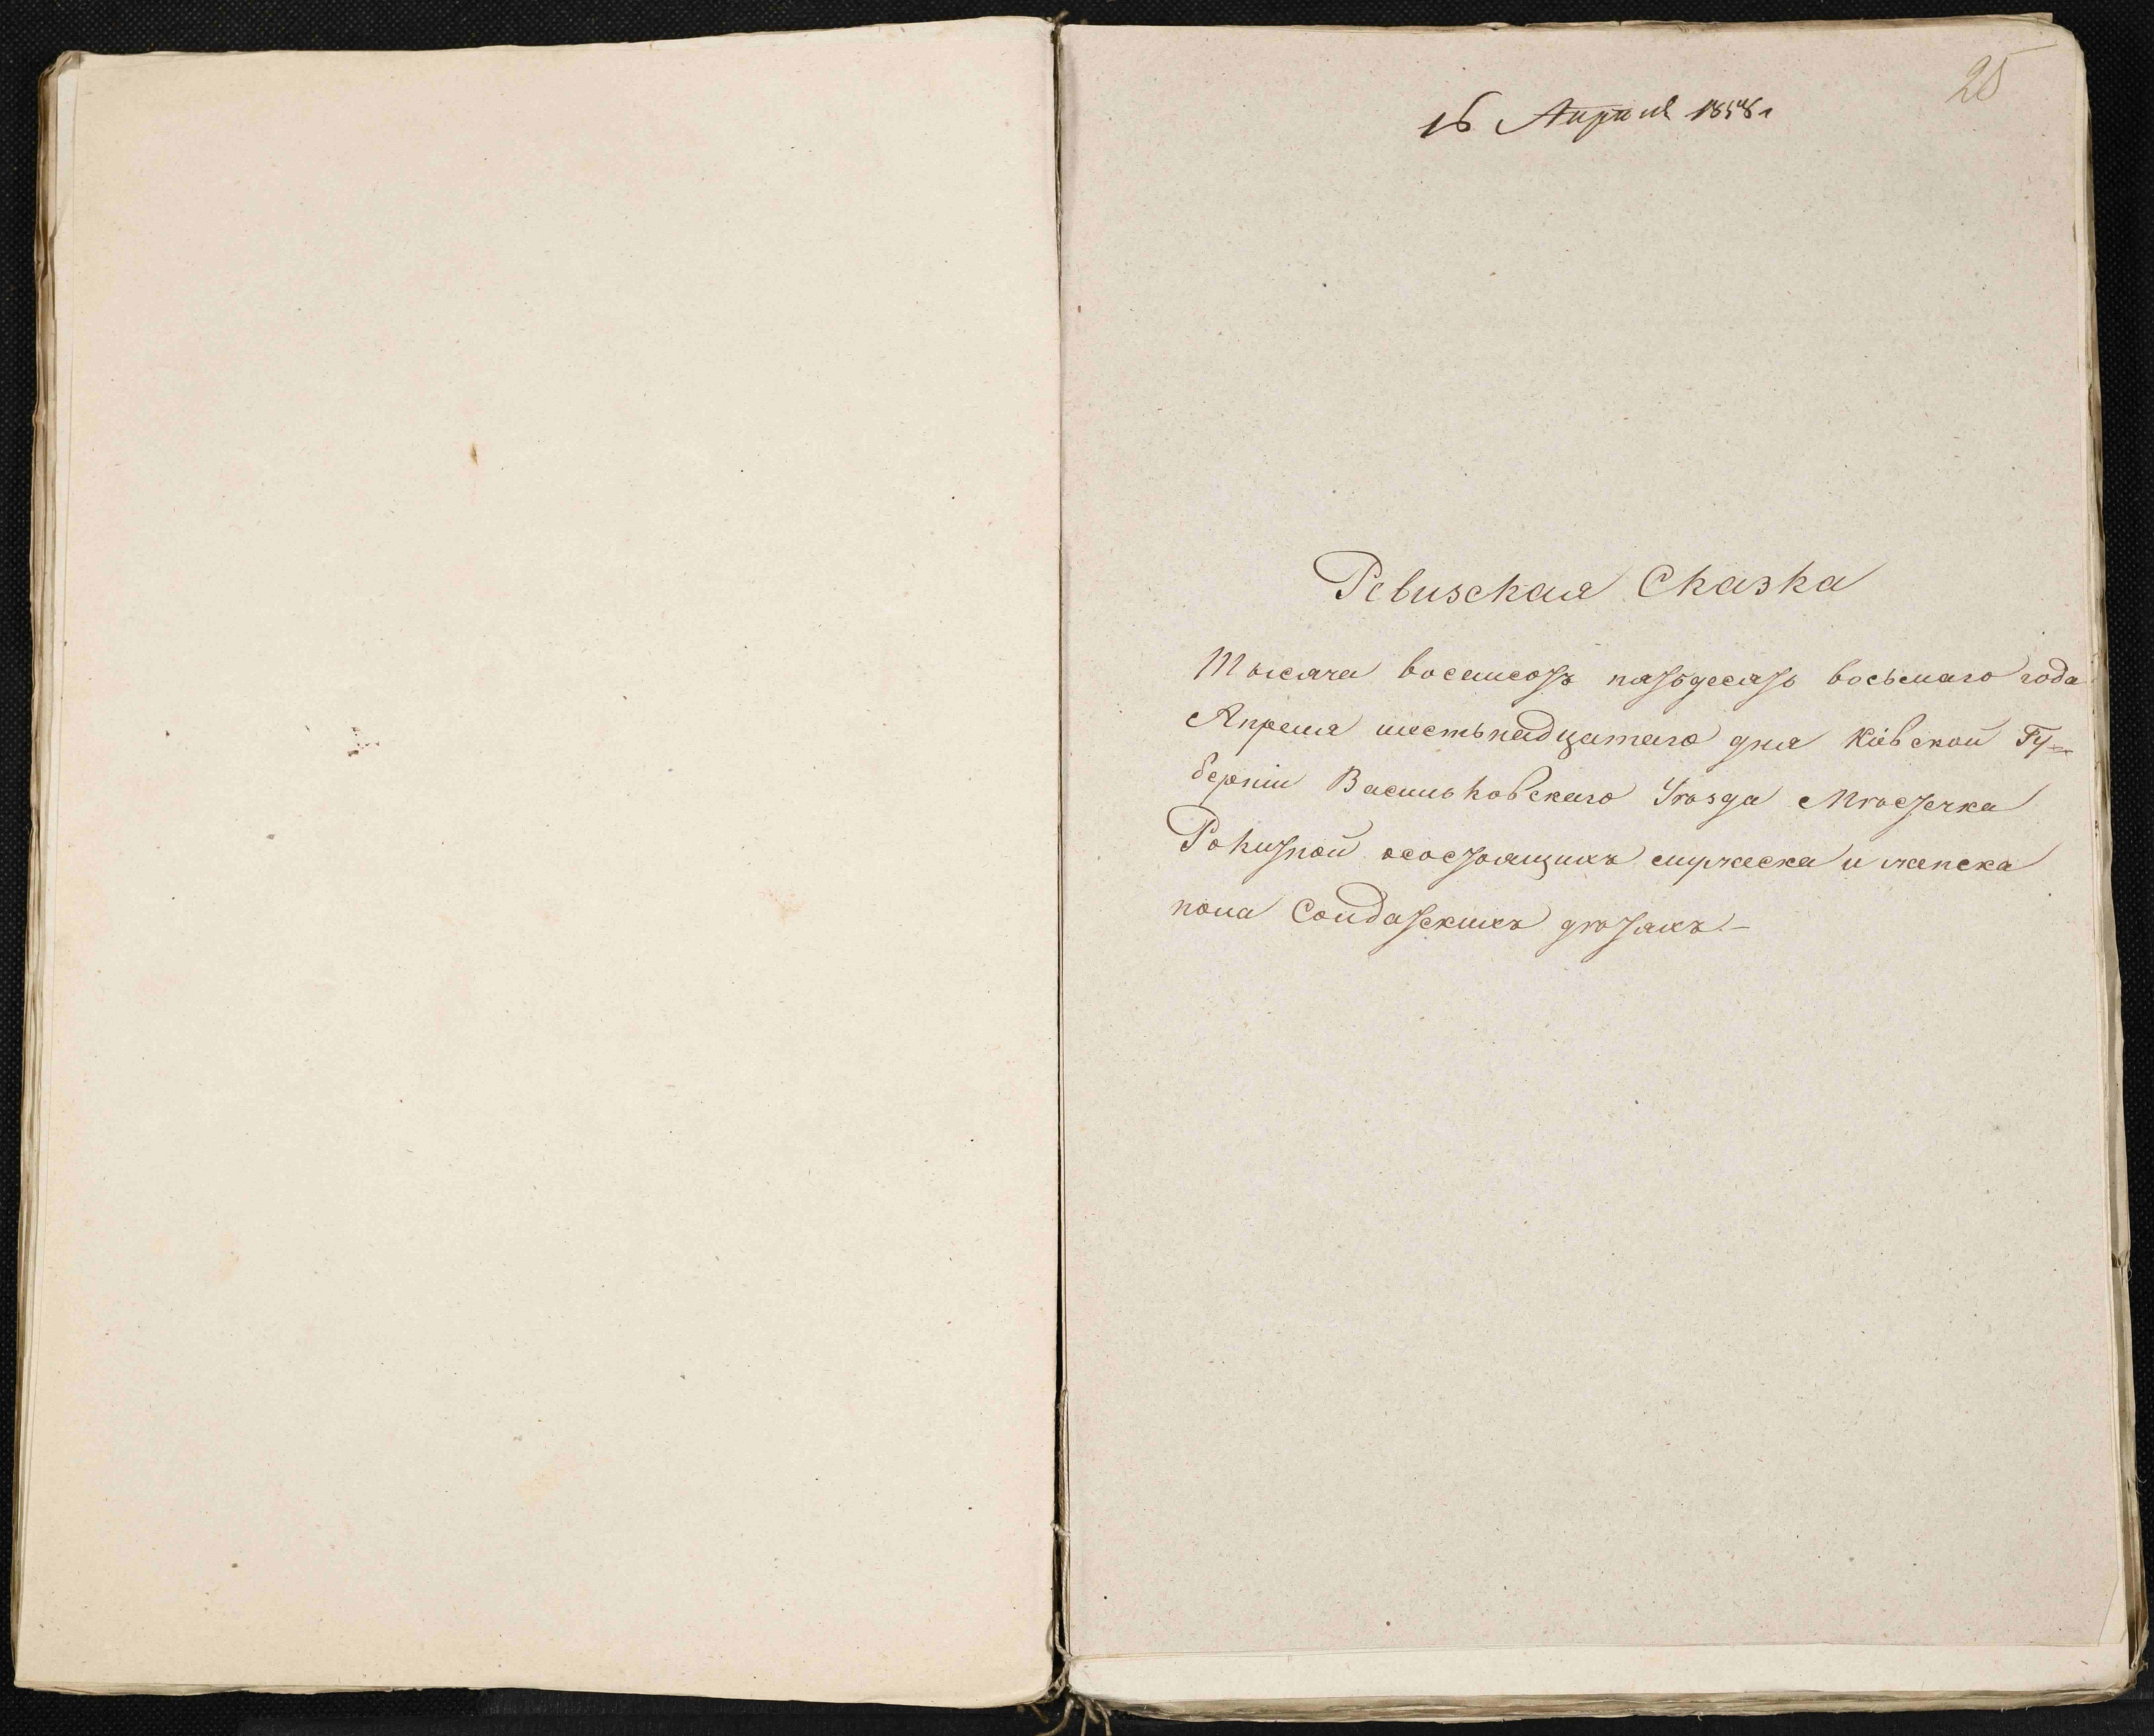 25
16 Апреля 1858 г
Ревизская Сказка
Тысяча восемсотъ пятьдесятъ восьмаго года
Апреля шестьнадцатаго дня Кіевской Гу-
берніи Васильковскаго Уѣзда Мѣстечка
Рокитной осостоящихъ мужеска и женска
пола Солдатскихъ дѣтяхъ.—